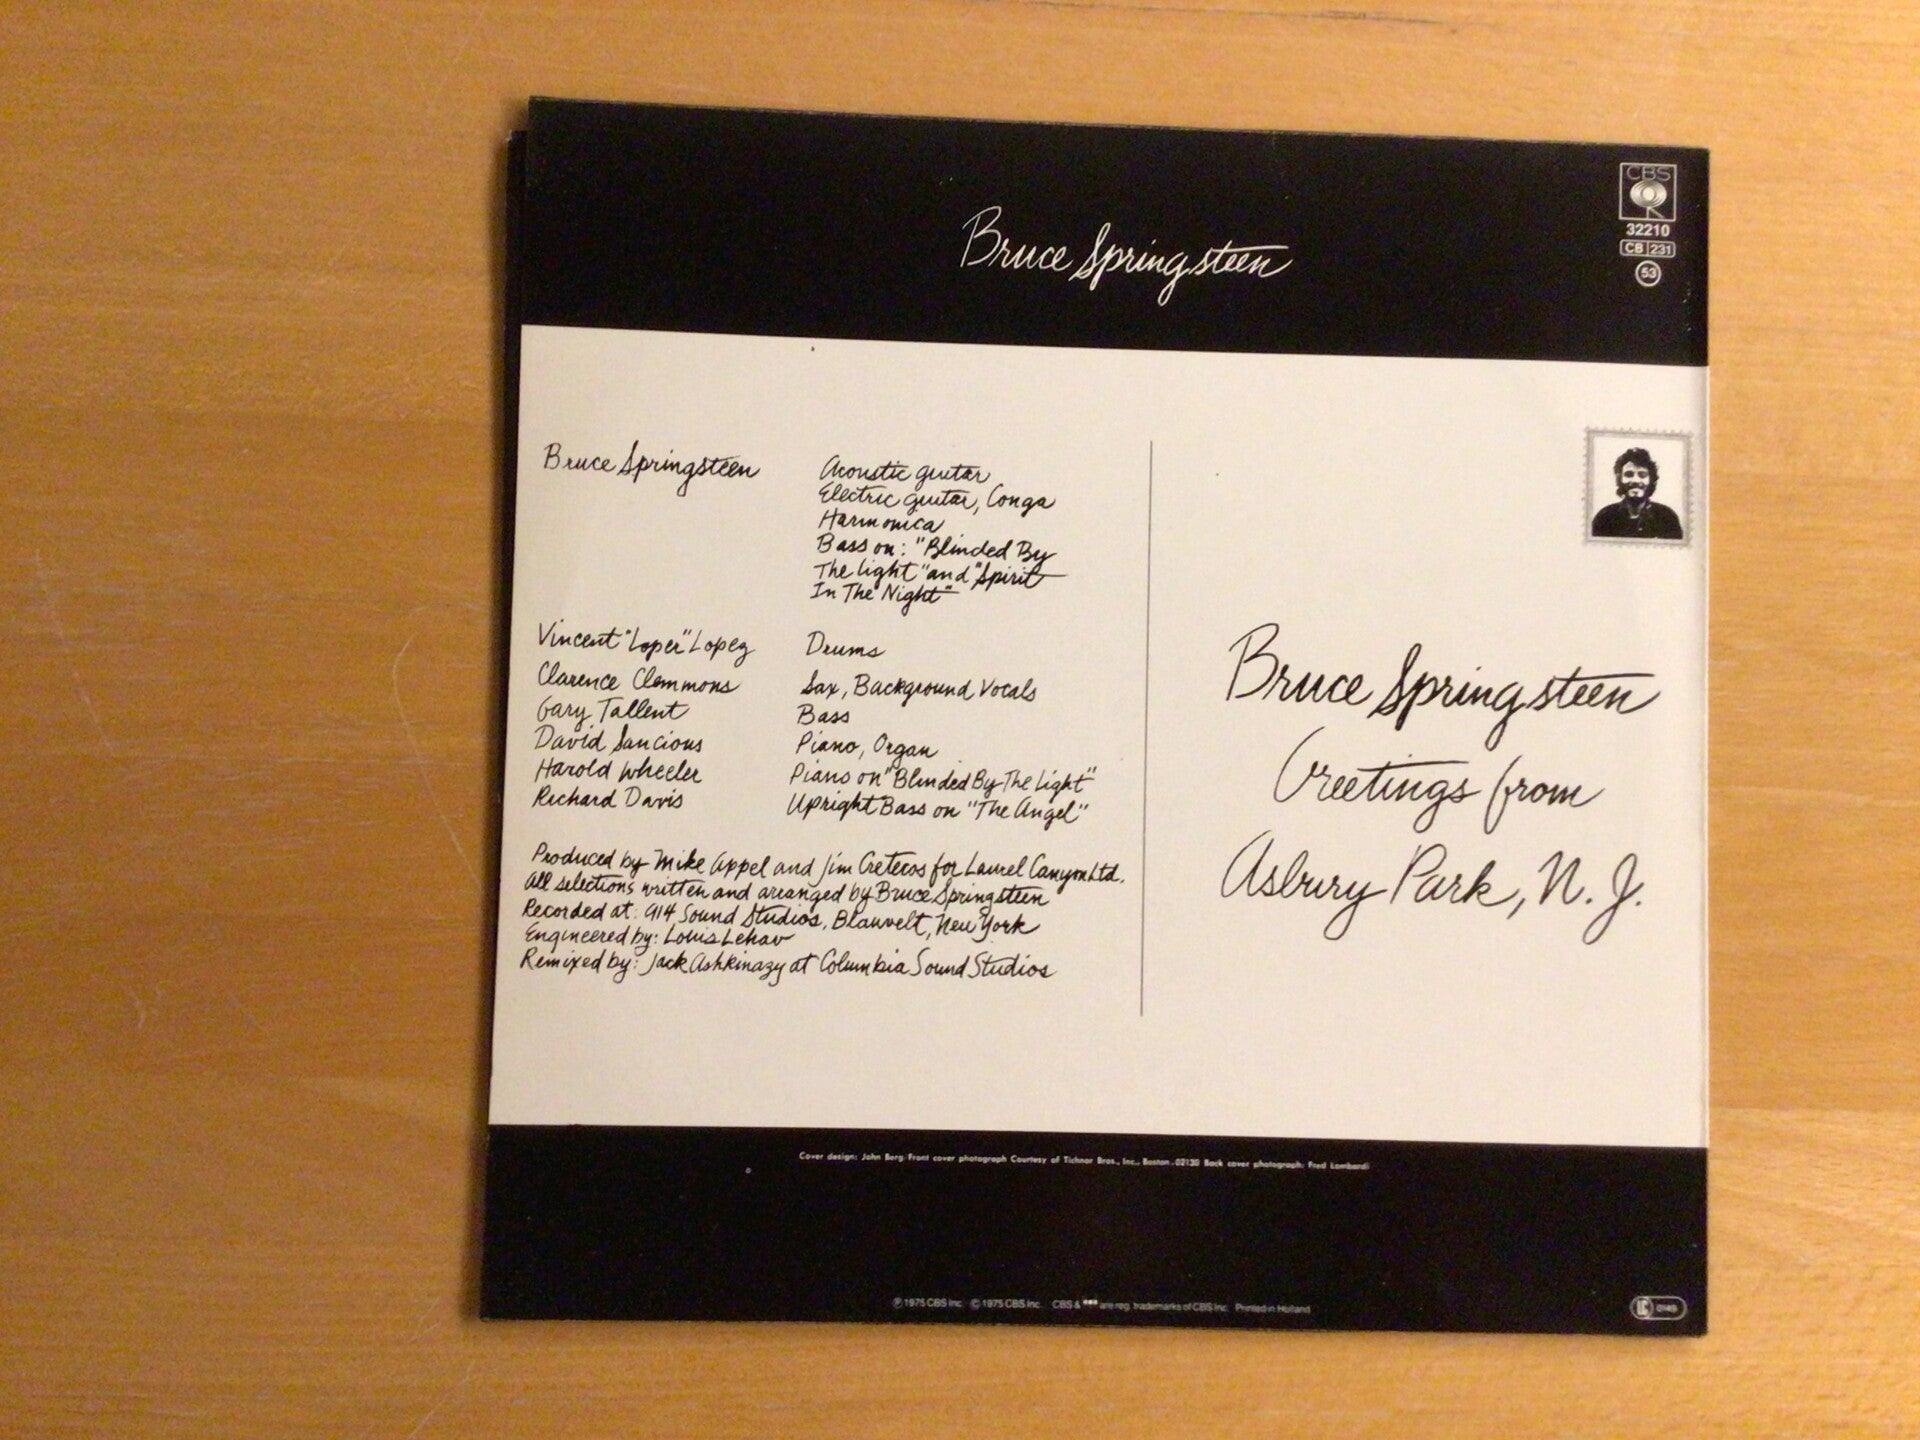 Bruce Springsteen
CBS
32210
CB 231
53
Bruce Springsteen Acoustic guitar
Electric guitar, Conga
Harmonica
Bass on: "Blinded By
The Light" and "Spirit
In The Night"
Vincent "Loper" Lopez Drums
Clarence Clemmons Sax, Background Vocals
Gary Tallent Bass
David Sancious Piano, Organ
Harold Wheeler Piano on "Blinded By The Light"
Richard Davis Upright Bass on "The Angel"
Produced by Mike Appel and Jim Cretecos for Laurel Canyon Ltd.
All selections written and arranged by Bruce Springsteen
Recorded at: 914 Sound Studios, Blauvelt, New York
Engineered by: Louis Lehav
Remixed by: Jack Ashkinazy at Columbia Sound Studios
Bruce Springsteen
Greetings from
Asbury Park, N. J.
Cover design: John Berg/Front cover photograph Courtesy of Tichnor Bros., Inc., Boston. 02130 Back cover photograph: Fred Lombardi
℗ 1975 CBS Inc. © 1975 CBS Inc. CBS & are reg. trademarks of CBS Inc. Printed in Holland
LC 0149